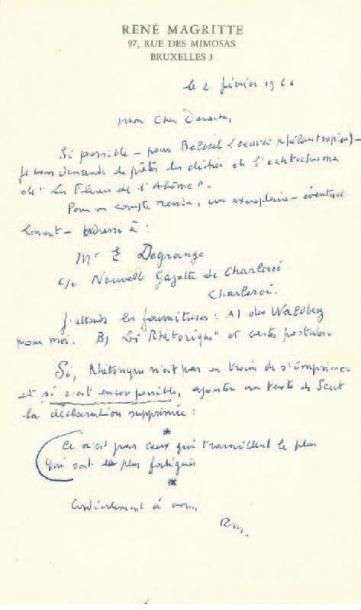 RENÉ MAGRITTE
97, RUE DES MIMOSAS
BRUXELLES 3
le 2 février 196
mon cher
Si possible – pour
je vous demande de prêter les clichés de l'
de "Les Fleurs de l'Abîme".
Pour un compte rendu, un exemplaire – éventuel
– adresse à :
Mr E Degrange
c/o Nouvelle Gazette de Charleroi
Charleroi.
J'attends les fournitures : A) des Waldberg
pour moi. B) "La Rhétorique" et cartes postales.
Si, Rhétorique n'est pas en train de s'imprimer
et si c'est encore possible, ajouter au texte de Scut
la déclaration supprimée :
*
Ce n'est pas ceux qui travaillent le plus
qui sont les plus fatigués
*
Cordialement à vous,